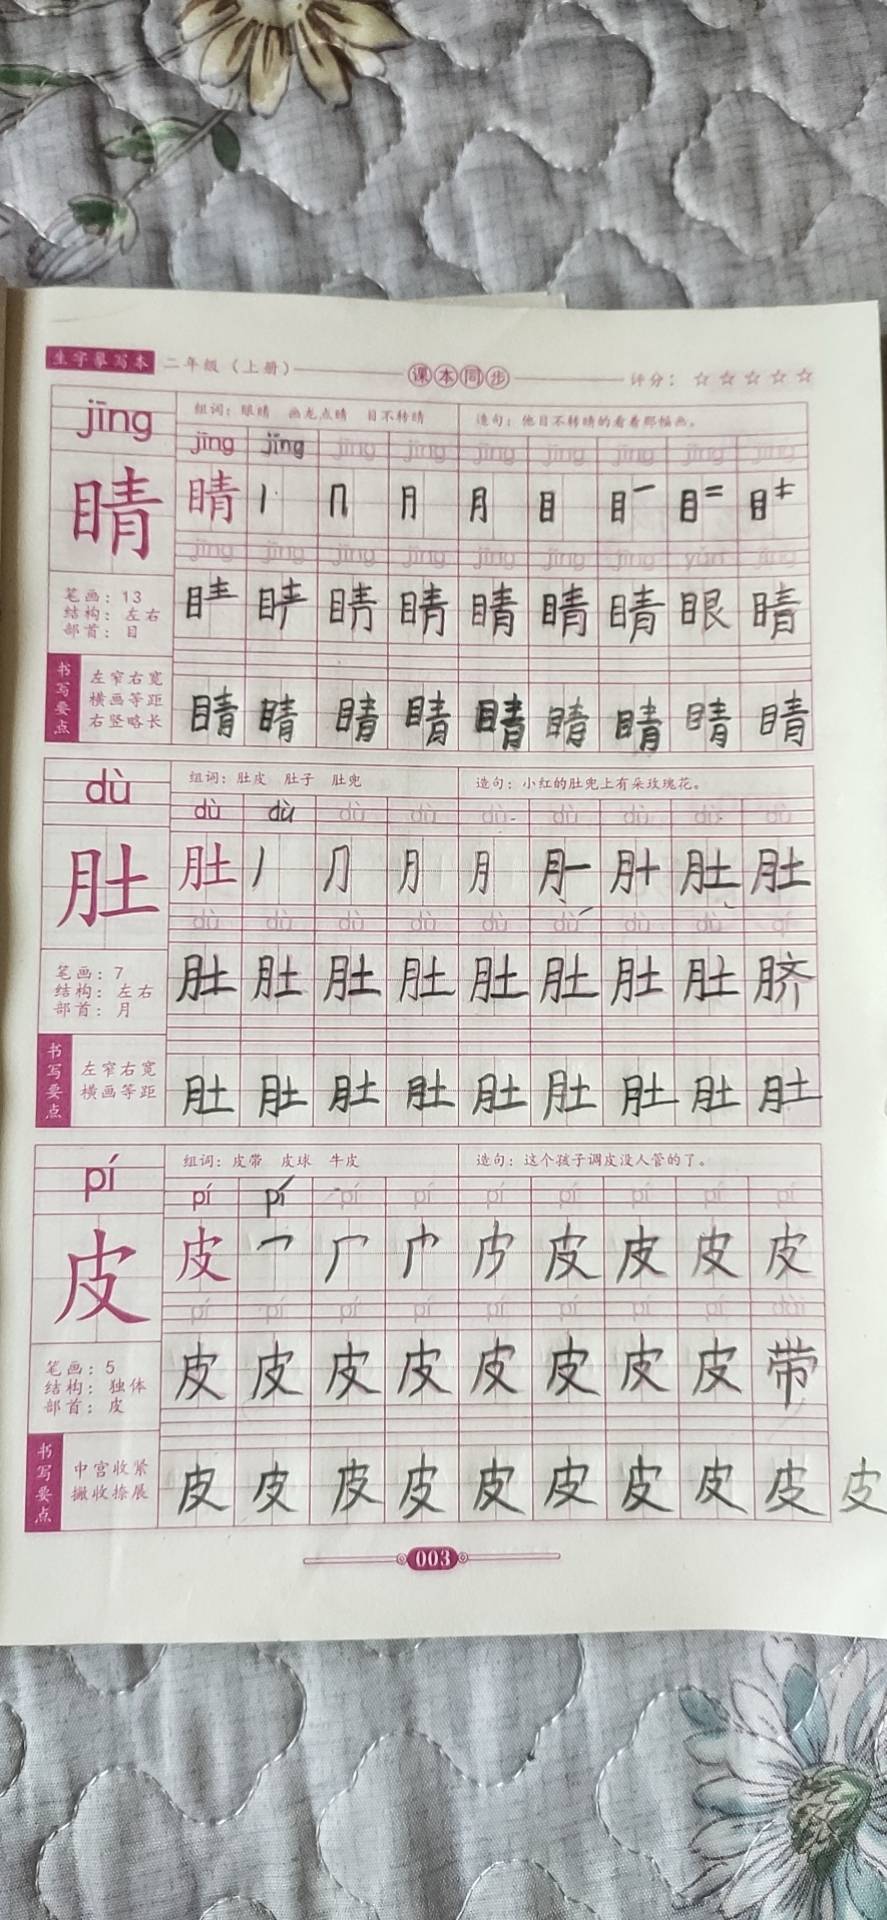 生字摹写本 二年级（上册） 课本同步 评分：☆☆☆☆☆
jīng 组词：眼睛 画龙点睛 目不转睛 造句：他目不转睛的看着那幅画。
jīng jīng jīng jīng jīng jīng jīng jīng jīng
睛 睛 丨 冂 月 月 目
jīng jīng jīng jīng jīng jīng jīng yǎn jīng
笔画：13
结构：左右
部首：目
睛 睛 睛 睛 睛 眼 睛
书写要点
左窄右宽
横画等距
右竖略长
睛 睛 睛 睛 睛 睛 睛 睛 睛
dù 组词：肚皮 肚子 肚兜 造句：小红的肚兜上有朵玫瑰花。
dù dù dù dù dù dù dù dù dù
肚 肚 丿 ⺆ 月 月 肚 肚
dù dù dù dù dù dù dù dù qí
笔画：7
结构：左右
部首：月
肚 肚 肚 肚 肚 肚 肚 肚 脐
书写要点
左窄右宽
横画等距
肚 肚 肚 肚 肚 肚 肚 肚 肚
pí 组词：皮带 皮球 牛皮 造句：这个孩子调皮没人管的了。
pí pí pí pí pí pí pí pí pí
皮 皮 乛 厂 皮 皮 皮 皮
pí pí pí pí pí pí pí pí dài
笔画：5
结构：独体
部首：皮
皮 皮 皮 皮 皮 皮 皮 皮 带
书写要点
中宫收紧
撇收捺展
皮 皮 皮 皮 皮 皮 皮 皮 皮 皮
003